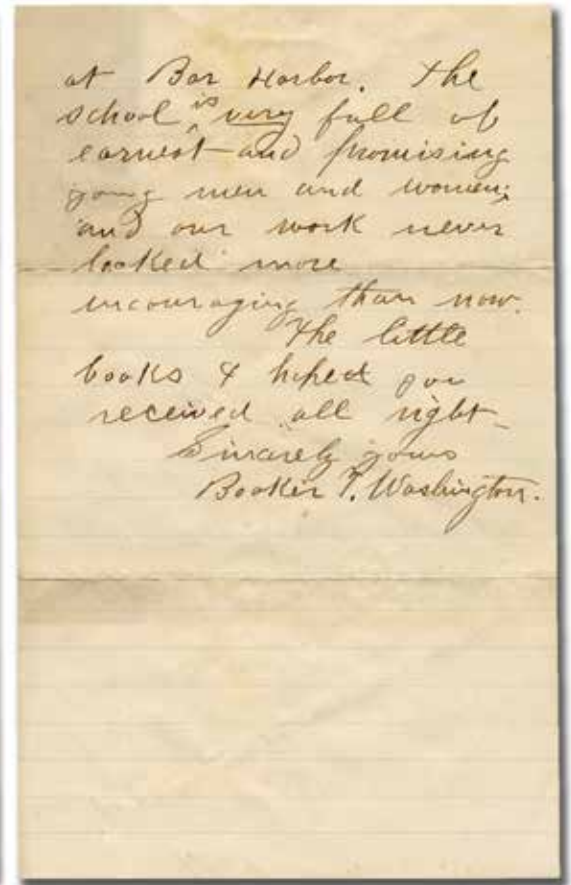 at Bar Harbor. The
school is very full of
earnest and promising
young men and women;
and our work never
looked more
encouraging than now.
The little
books I hoped you
received all right_
Sincerely yours
Booker T. Washington.